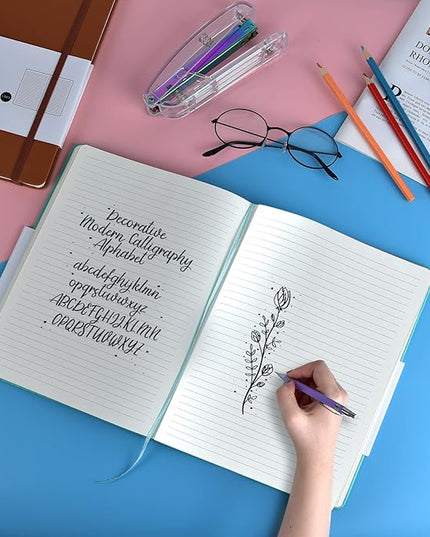 Decorative
Modern Calligraphy
Alphabet
abcdefghijklmn
opqrstuvwxyz
ABCDEFGHIJKLMN
OPQRSTUVWXYZ